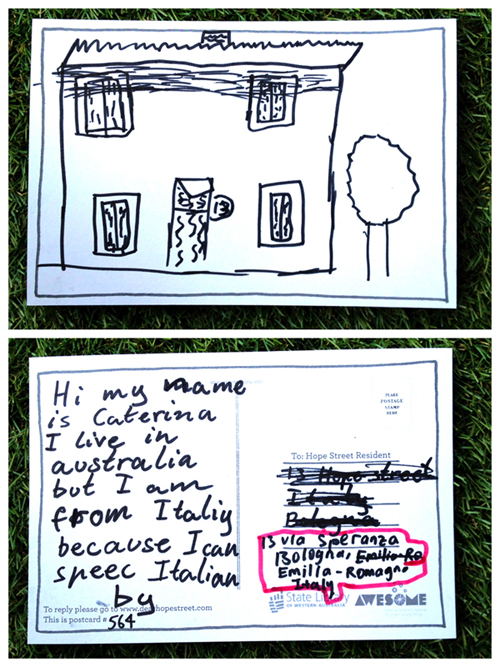 13
Hi my name
is Caterina
I live in
australia
but I am
from Italiy
because I can
speec Italian
by
To reply please go to www.dearhopestreet.com
This is postcard # 564
PLACE
POSTAGE
STAMP
HERE
To: Hope Street Resident
13 Hope street
Italy
Bologna
13 via Speranza
Bologna, Emilia-Ro
Emilia-Romagna
Italy
State Library
OF WESTERN AUSTRALIA
AWESOME